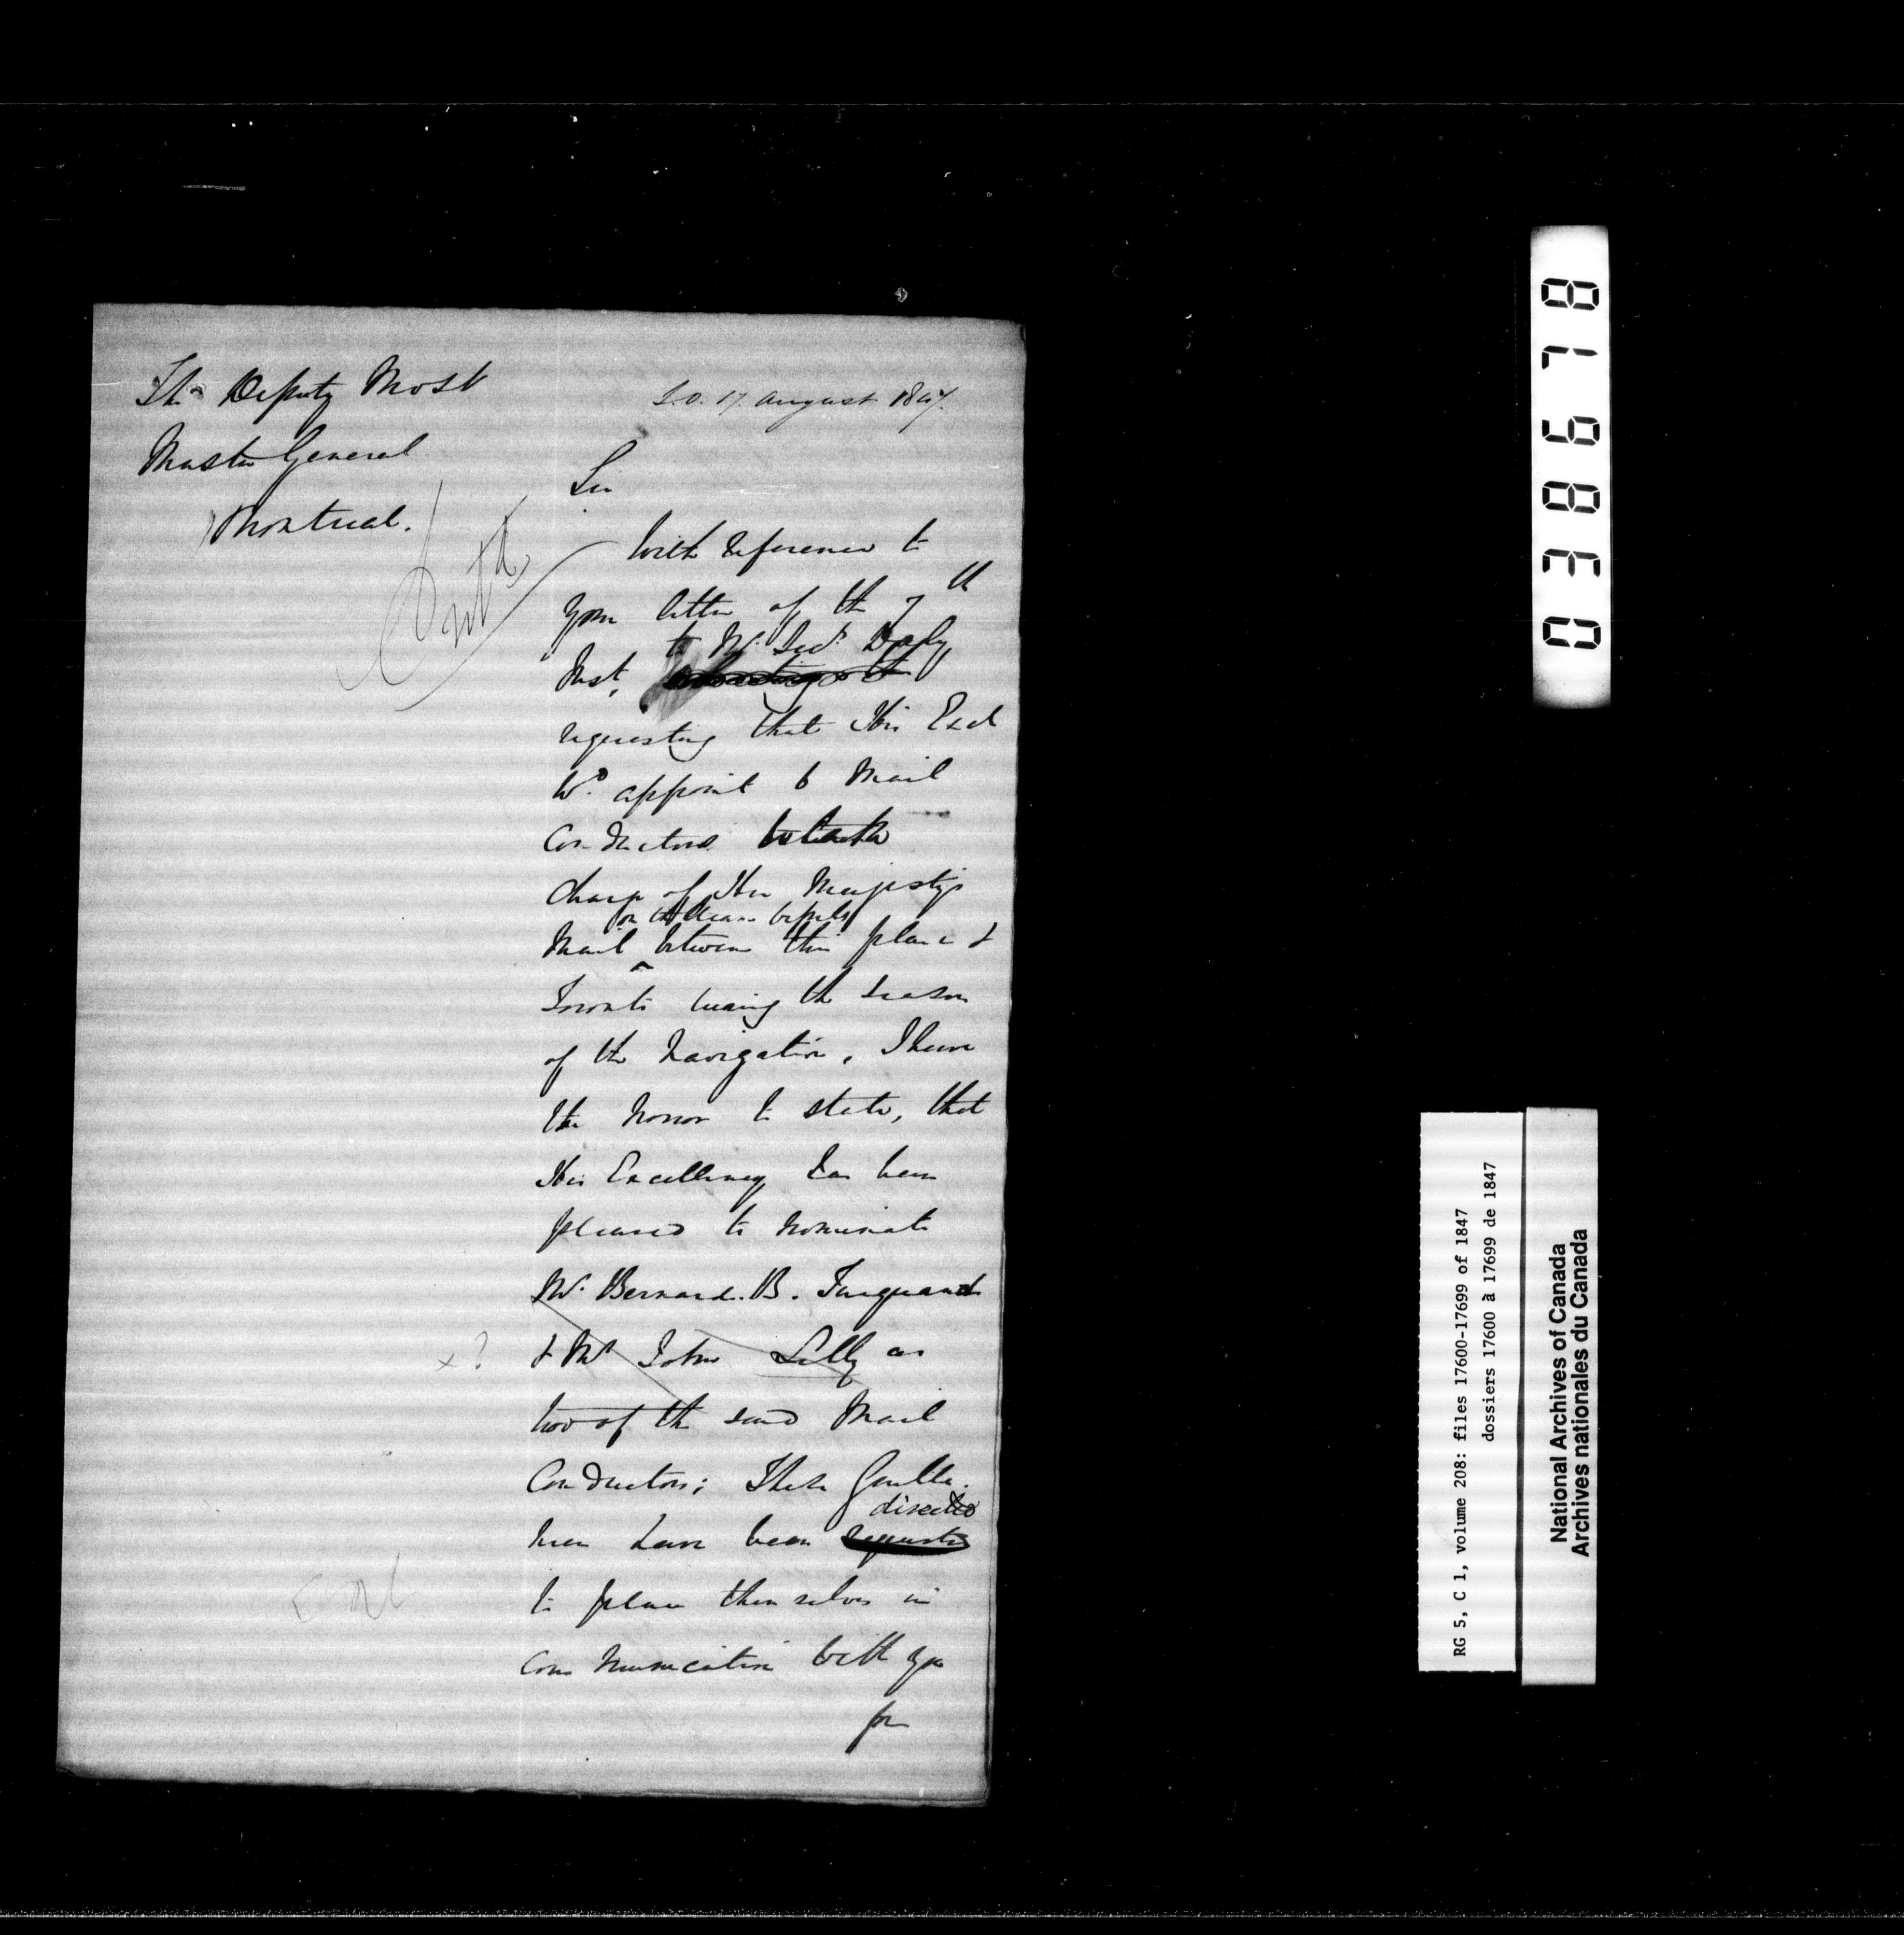 The Deputy Post
Master General
Montreal.
S.O. 17 August 1847.
Sir
With reference to
your letter of the 7th
Inst, to Mr. Secy. Daly,
requesting that His Exc
Wd. appoint 6 Mail
Conductors to take
charge of Her Majesty's
on the Steam Vessels
Mail between this place &
Toronto during the season
of the Navigation, I have
the honor to state, that
His Excellency has been
pleased to nominate
Mr. Bernard. B. Farquand
& Mr John Lilly as
x ?
two of the said Mail
Conductors; These Gentle-
directed
men have been requested
to place themselves in
communication with you
for
038678
RG 5, C 1, volume 208: files 17600-17699 of 1847
dossiers 17600 à 17699 de 1847
National Archives of Canada
Archives nationales du Canada